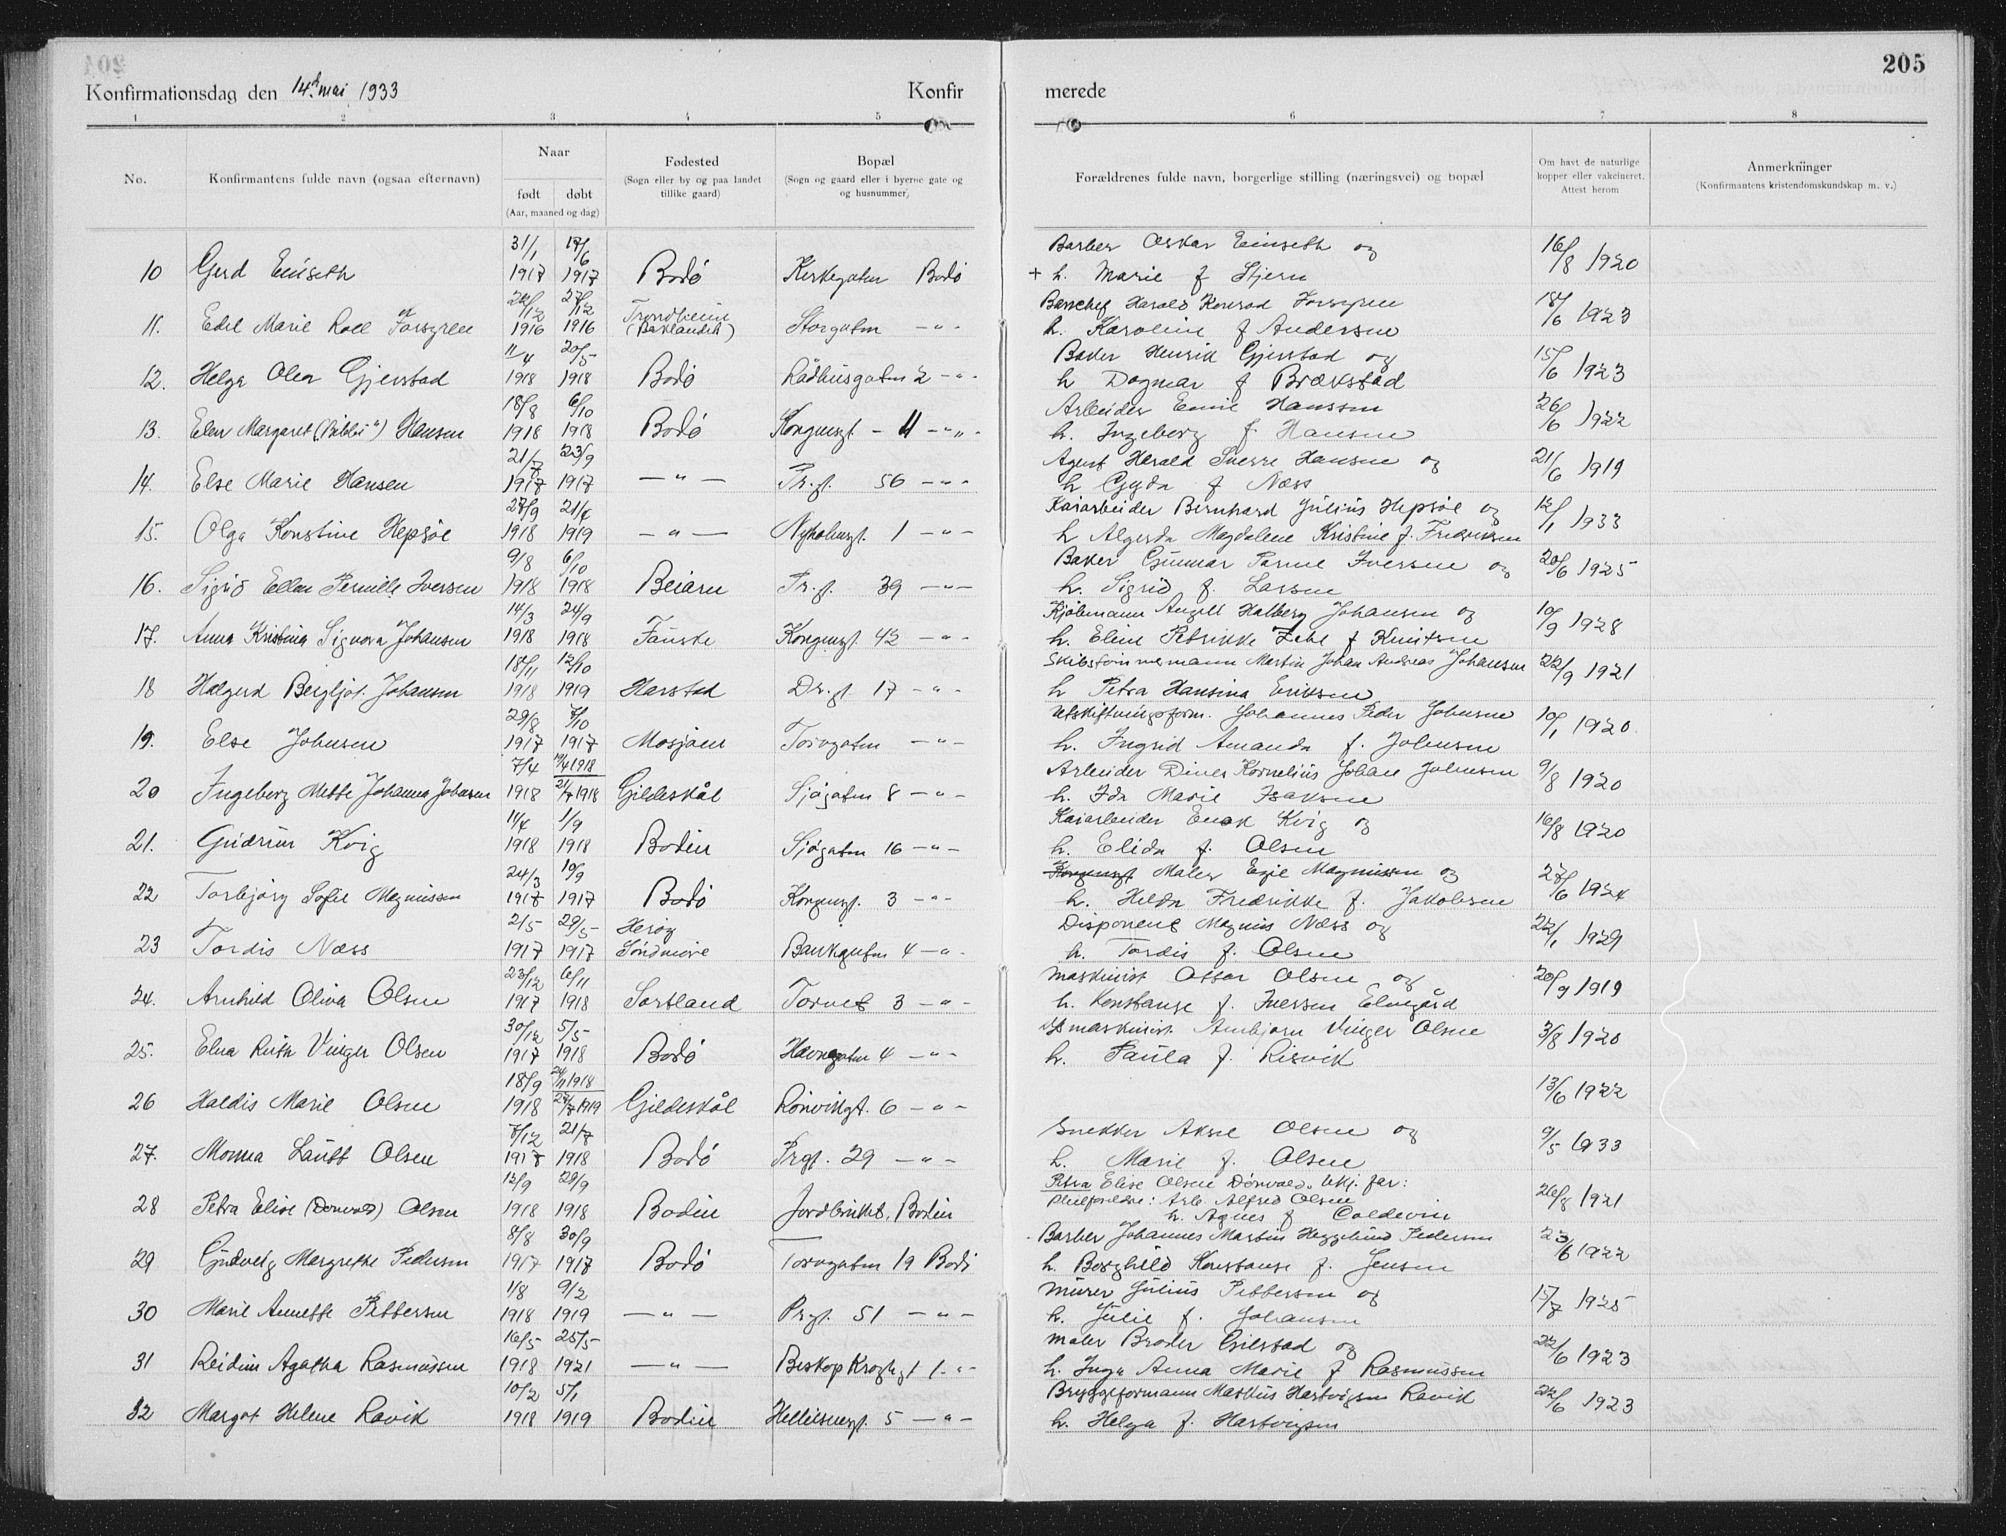 205
Konfirmationsdag den 14d mai 1933 Konfir merede
1 2 3 4 5 6 7 8
No. Konfirmantens fulde navn (ogsaa efternavn) Naar født døbt (Aar, maaned og dag) Fødested (Sogn eller by og paa landet tillike gaard) Bopæl (Sogn og gaard eller i byerne gate og og husnummer) Forældrenes fulde navn, borgerlige stilling (næringsvei) og bopæl Om havt de naturlige kopper eller vakcineret. Attest herom Anmerkninger (Konfirmantens kristendomskundskap m. v.)
31/1 17/6 Barber Oskar Einseth og
10 Gerd Einseth 1917 1917 Bodø Kirkegaten Bodø + h. Marie f Stjern 16/8 1920
27/12 Trondheim Harald Konrad Forsgren
11. Edel Marie Roll Forsgren 1916 1916 (Baklandet) Storgaten -"- h. Karoline f Andersen 18/6 1923
11/4 20/5 Baker Henrik Gjerstad og
12. Helga Olea Gjerstad 1918 1918 Bodø Rådhusgaten 2 -"- h Dagmar f Brækstad 15/6 1923
18/8 6/10 Arbeider Emil Hanssen
13. Elen Margaret ("Bibbi") Hansen 1918 1918 Bodø Kongensgt - 4 -"- h. Ingeborg f. Hansen 26/6 1922
21/7 23/9 Agent Harald Sverre Hansen og
14. Else Marie Hansen 1917 1917 -"- Pr.gt. 56 -"- h Gyda f Næss 21/6 1919
27/9 21/4 Kaiarbeider Bernhard Julius Hepsøe og
15. Olga Konstine Hepsøe 1918 1919 -"- Nyholmsgt. 1 -"- h Algerda Magdalene Kristine f. Fredriksen 12/1 1933
9/8 6/10 Baker Gunnar Iversen og
16. Sigrid Ellen Pernille Iversen 1918 1918 Beiarn Pr.gt. 39 -"- h. Sigrid f. Larsen 20/6 1925
14/3 24/9 Kjøbmann Angell Halberg Johansen og
17. Anna Kristina Signora Johansen 1918 1918 Fauske Kongensgt 42 -"- h. Eline Petrikke f Knutsen 10/9 1928
18/11 12/10 Skibstømmermann Martin Johan Andreas Johansen
18 Halgerd Bergljot Johansen 1918 1919 Harstad Dr.gt 17 -"- h Petra Hansina Eriksen 22/9 1921
29/8 7/10 Utskiftningsform. Johannes Peder Johnsen
19. Else Johnsen 1917 1917 Mosjøen Torvgaten -"- h. Ingrid Amanda f. Johnsen 10/1 1920
7/4 14/4 1918 Arbeider Diner Kornelius Johan Johnsen
20 Ingeborg Mette Johanna Johnsen 1918 21/7 1918 Gildeskål Sjøgaten 8 -"- h. Ida Marie Isaksen 9/8 1920
11/4 1/9 Kaiarbeider Enok Kvig og
21. Gudrun Kvig 1918 1918 Bodin Sjøgaten 16 -"- h. Elida f. Olsen 16/8 1920
24/3 10/9 Kongensgt Maler Egil Magnussen og
22 Torbjørg Sofie Magnussen 1917 1917 Bodø Kongensgt. 3 -"- h. Helda Fredrikke f. Jakobsen 27/6 1924
2/5 29/5 Herøy Disponent Magnus Næss og
23 Tordis Næss 1917 1917 Søndmøre Bankgaten 4 -"- h. Tordis f. Olsen 22/1 1929
23/12 6/11 Maskinist Ottar Olsen og
24. Arnhild Oliva Olsen 1917 1918 Sortland Torvet 3 -"- h. Konstanse f. Iversen Elvegård 20/9 1919
30/12 5/5 Maskinist Arnbjørn Vinger Olsen
25. Elna Ruth Vinger Olsen 1917 1918 Bodø Havnegaten 4 -"- h. Paula f. Risvik 3/8 1920
18/9 24/11 1918
26 Haldis Marie Olsen 1918 27/7 1919 Gildeskål Rønvikgt. 6 -"- 13/6 1922
7/12 21/7 Snekker Aksel Olsen og
27. Monna Lautt Olsen 1917 1918 Bodø Prgt. 29 -"- h. Marie f. Olsen 9/5 1933
13/9 29/9 Petra Elise Olsen Dønvold. Ukj. far:
28 Petra Elise (Dønvold) Olsen 1918 1918 Bodin Jordbruket, Bodin Pleiforeldre: Arb. Alfred Olsen h. Agnes f Coldevin 26/8 1921
8/8 30/9 Barber Johannes Martin Heggelund Pedersen
29 Gudveig Margrethe Pedersen 1917 1917 Bodø Torvgaten 19 Bodø h. Borghild Konstanse f. Jensen 23/6 1922
1/8 9/2 Murer Julius Pettersen og
30 Marie Annette Pettersen 1918 1919 -"- Prgt. 51 -"- h. Julie f. Johansen 15/7 1925
16/5 25/5 Maler Broder Gilstad og
31 Reidun Agatha Rasmussen 1918 1921 -"- Biskop Kroghsgt 1 -"- h. Inga Anna Marie f Rasmussen 22/6 1923
10/2 5/1 Bryggeformann Markus Hartvigsen Ravik
32 Margot Helene Ravik 1918 1919 Bodin Hellensgt 5 -"- h. Helga f. Hartvigsen 22/6 1923